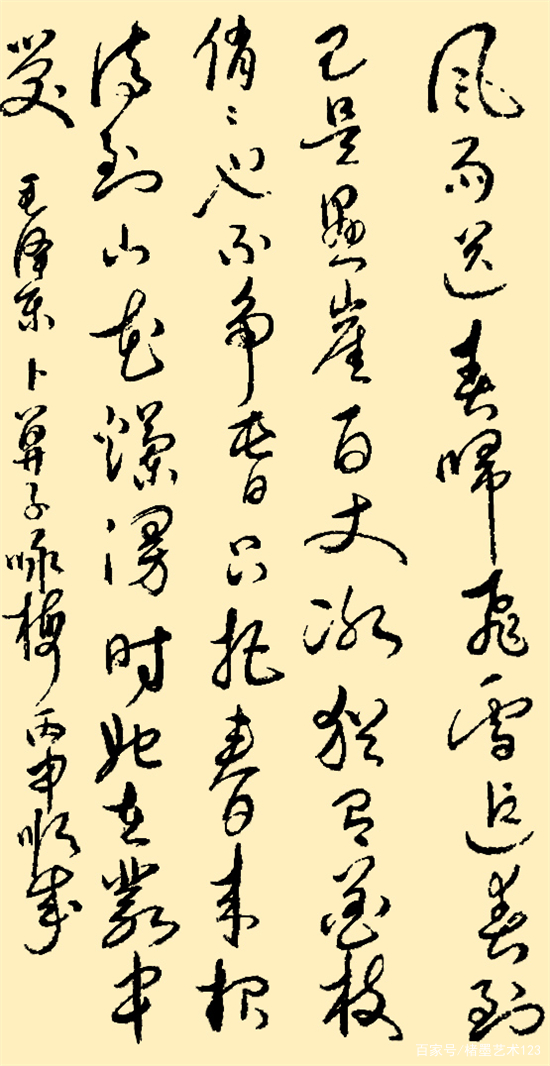 风雨送春归飞雪迎春到
已是悬崖百丈冰犹有花枝
俏〻也不争春只把春来报
待到山花烂漫时她在丛中
笑 毛泽东卜算子咏梅 丙申
百家号/墨艺术123